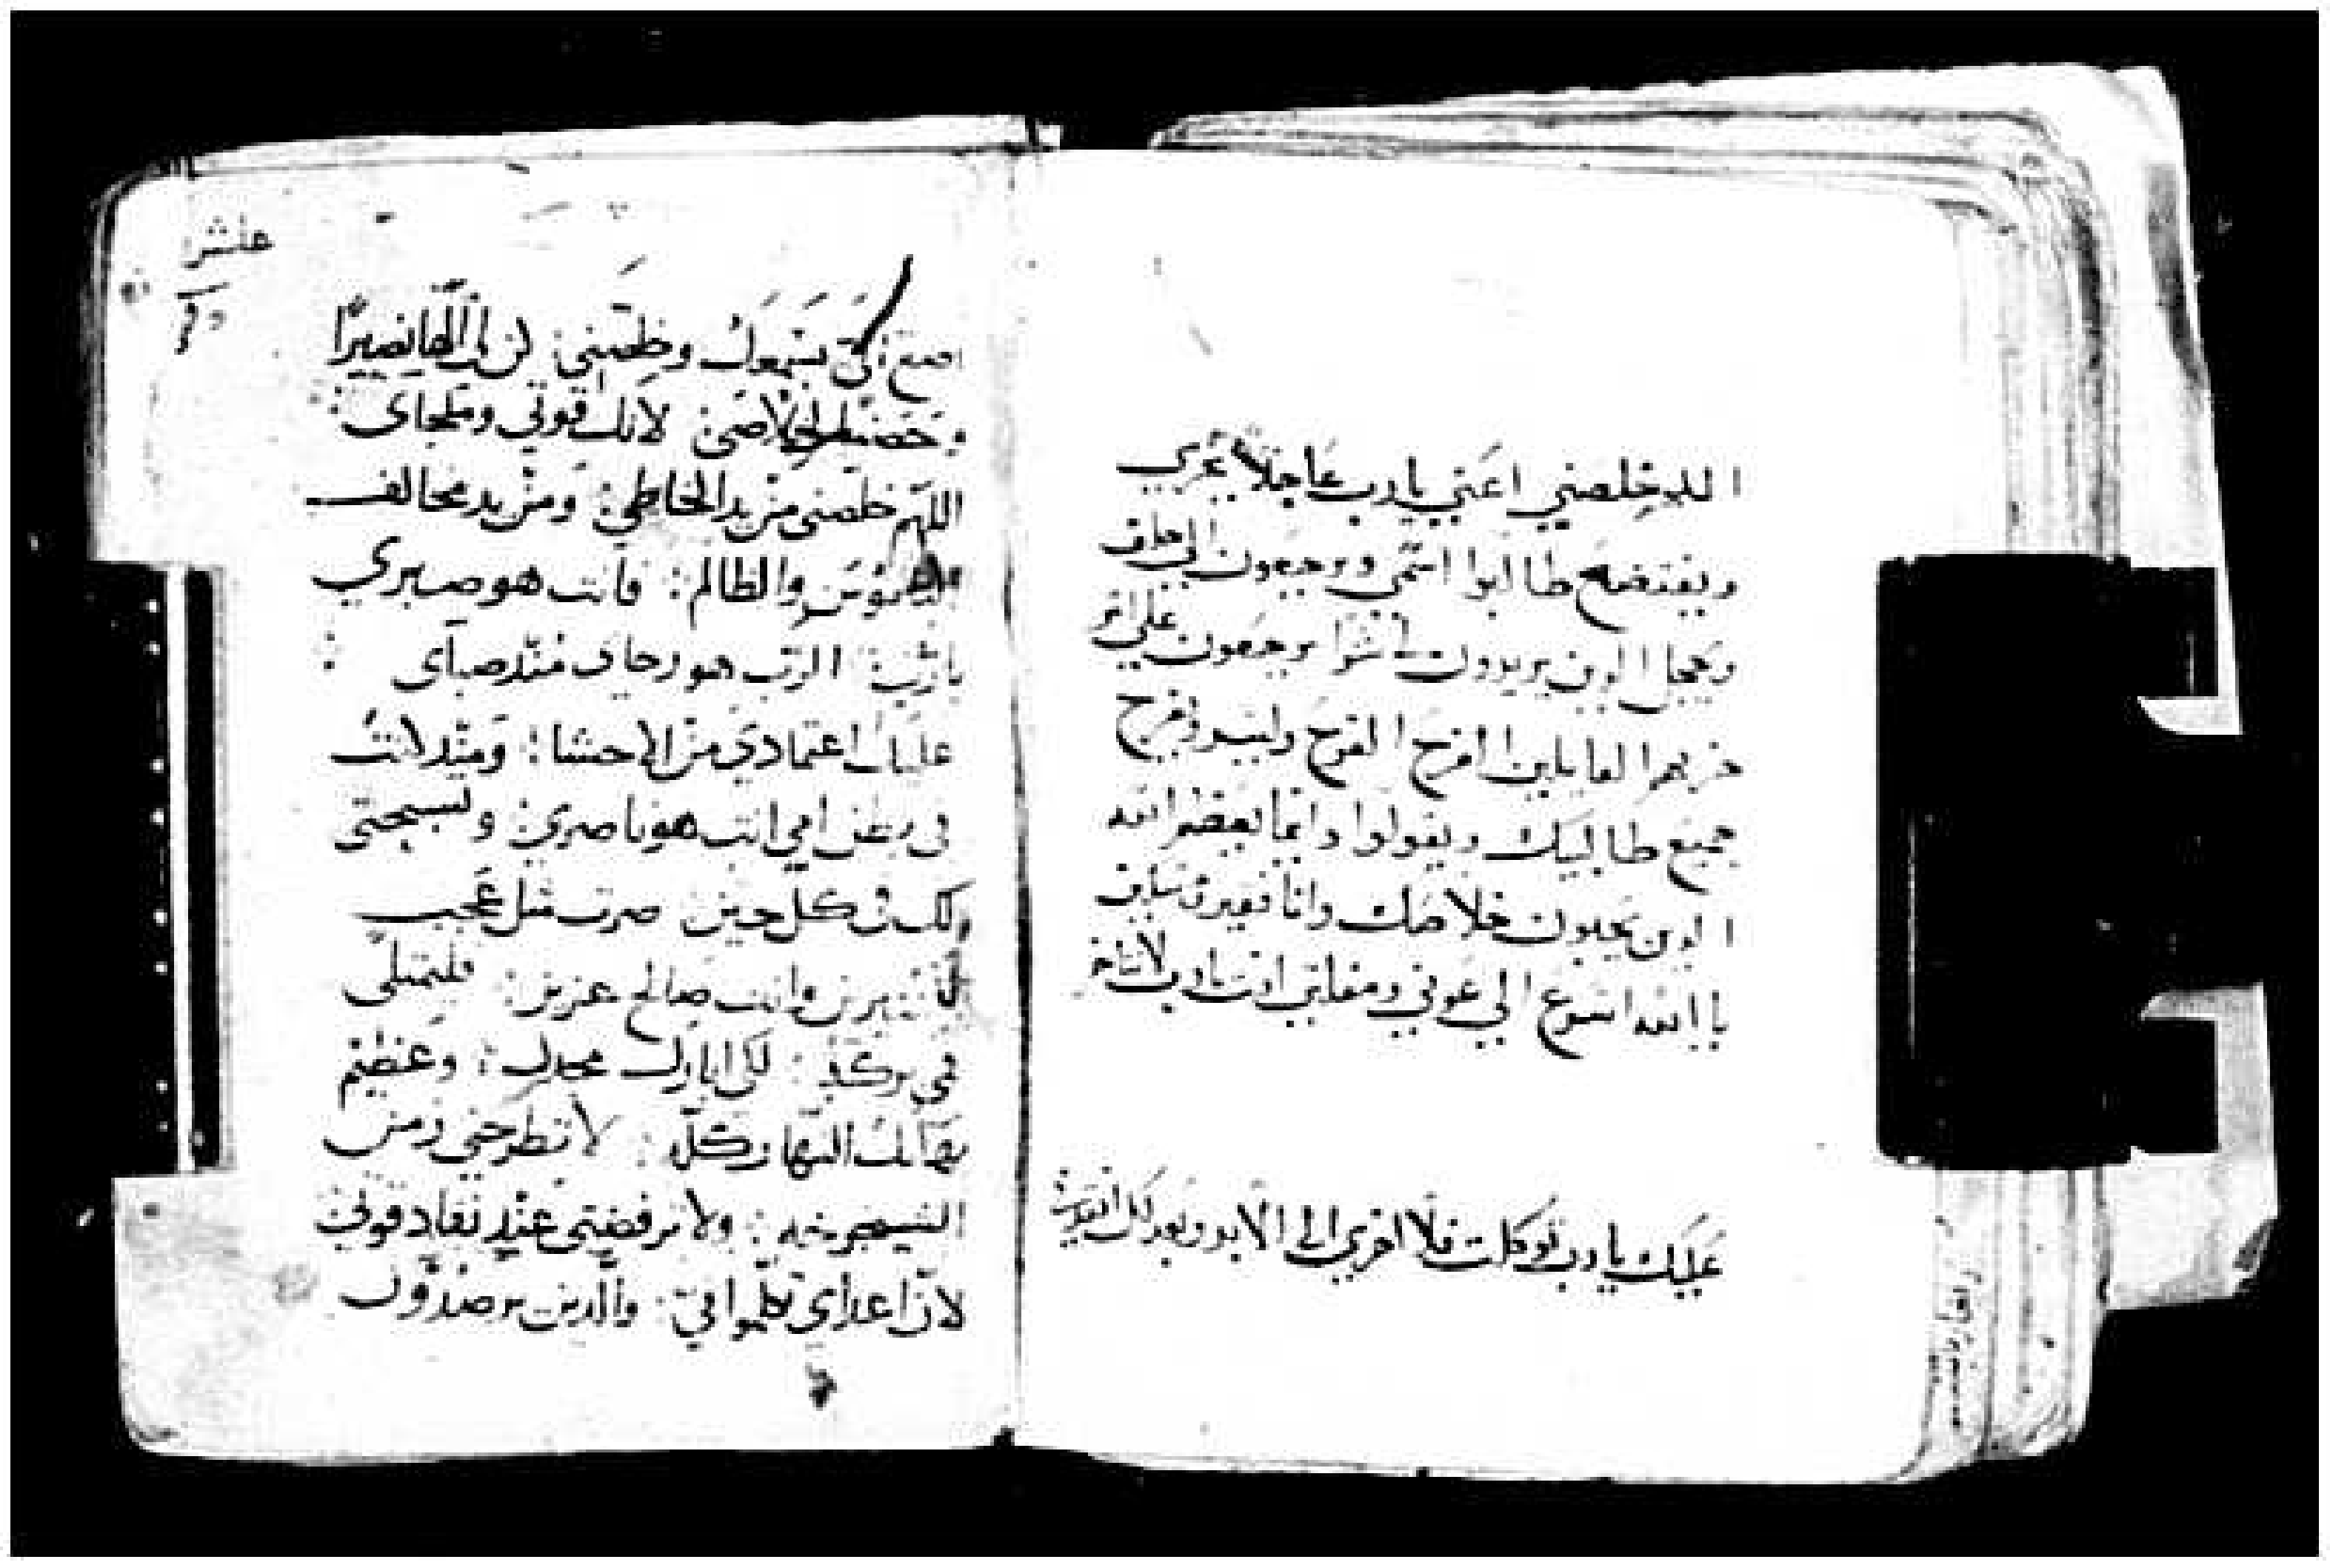 الله خلصني اعني يا رب عاجلاً يخزي
ويفتضح طالبوا اثمي ويرجعون الي خلف
ويخجل الدين يريدون لي شرا يرجعون علي اثر
خزيهم القايلين افرح الفرح وليسر ويفرح
جميع طالبيك ويقولوا دايما يعظم الله
الدين يحبون خلاصك وانا فقير
يا الله اسرع الي عوني ومنقدي انت يا رب لا تتاخر
عليك يا رب توكلت فلا اخزي الي الابد وبعدلك انقدني
عاشر
اصغ الى بسمعك وخلصني كن لي الها نصيرا
وحصنا لخلاصي لانك قوتي وملجاى
اللهم خلصني من يد الخاطي ومن يد مخالف
الناموس والظالم فانت هو صبري
يا رب الرب هو رجاى مند صباى
عليك اعتمادي من الاحشا ومند انت
في بطن امي انت هو ناصري وتسبحتي
لك في كل حين صرت مثل عجب
لكثيرين وانت صالح عزيز فليمتلى
فمي بركة لكي ابارك مجدك وعظيم
بهاك النهار كله لا تطرحني زمن
الشيخوخه ولا ترفضني عند نفاد قوتي
لان اعداي تكلموا في والدين يرصدون